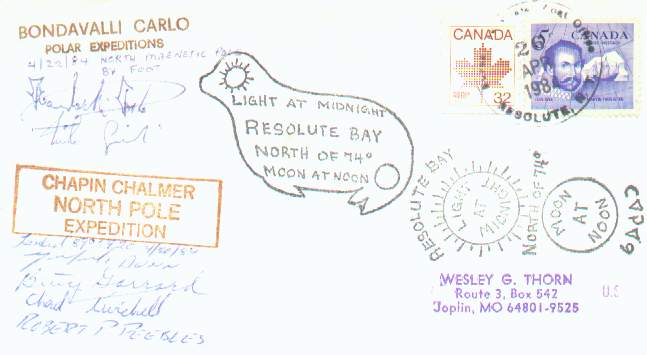 BONDAVALLI CARLO
POLAR EXPEDITIONS
4/22/84 NORTH MAGNETIC POLE
BY FOOT
CHAPIN CHALMER
NORTH POLE
EXPEDITION
4/20/84
Betty Garrard
Chad Twichell
ROBERT P PEEBLES
LIGHT AT MIDNIGHT
RESOLUTE BAY
NORTH OF 74°
MOON AT NOON
CANADA
32
5
CANADA
26
APR
198
RESOLUTE, N.
RESOLUTE BAY
LIGHT
AT
MIDNIGHT
NORTH OF 74°
MOON
AT
NOON
ᑲᓇᑕ
WESLEY G. THORN
Route 3, Box 542
Joplin, MO 64801-9525